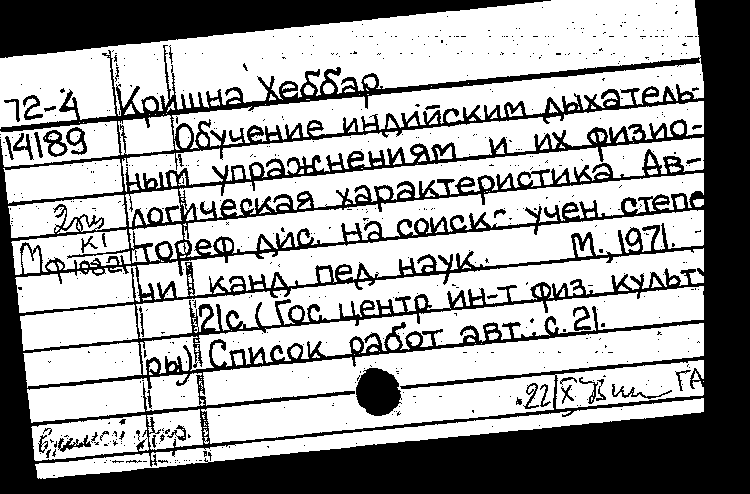 72-4 Кришна, Хеббар
14189 Обучение индийским дыхатель-
ным упражнениям и их физио-
логическая характеристика. Ав-
тореф. дис. на соиск. учен. степе
ни канд. пед. наук. М., 1971.
21с. (Гос. центр. ин-т физ. культу
ры). Список работ авт.: с. 21.
22/X ГА